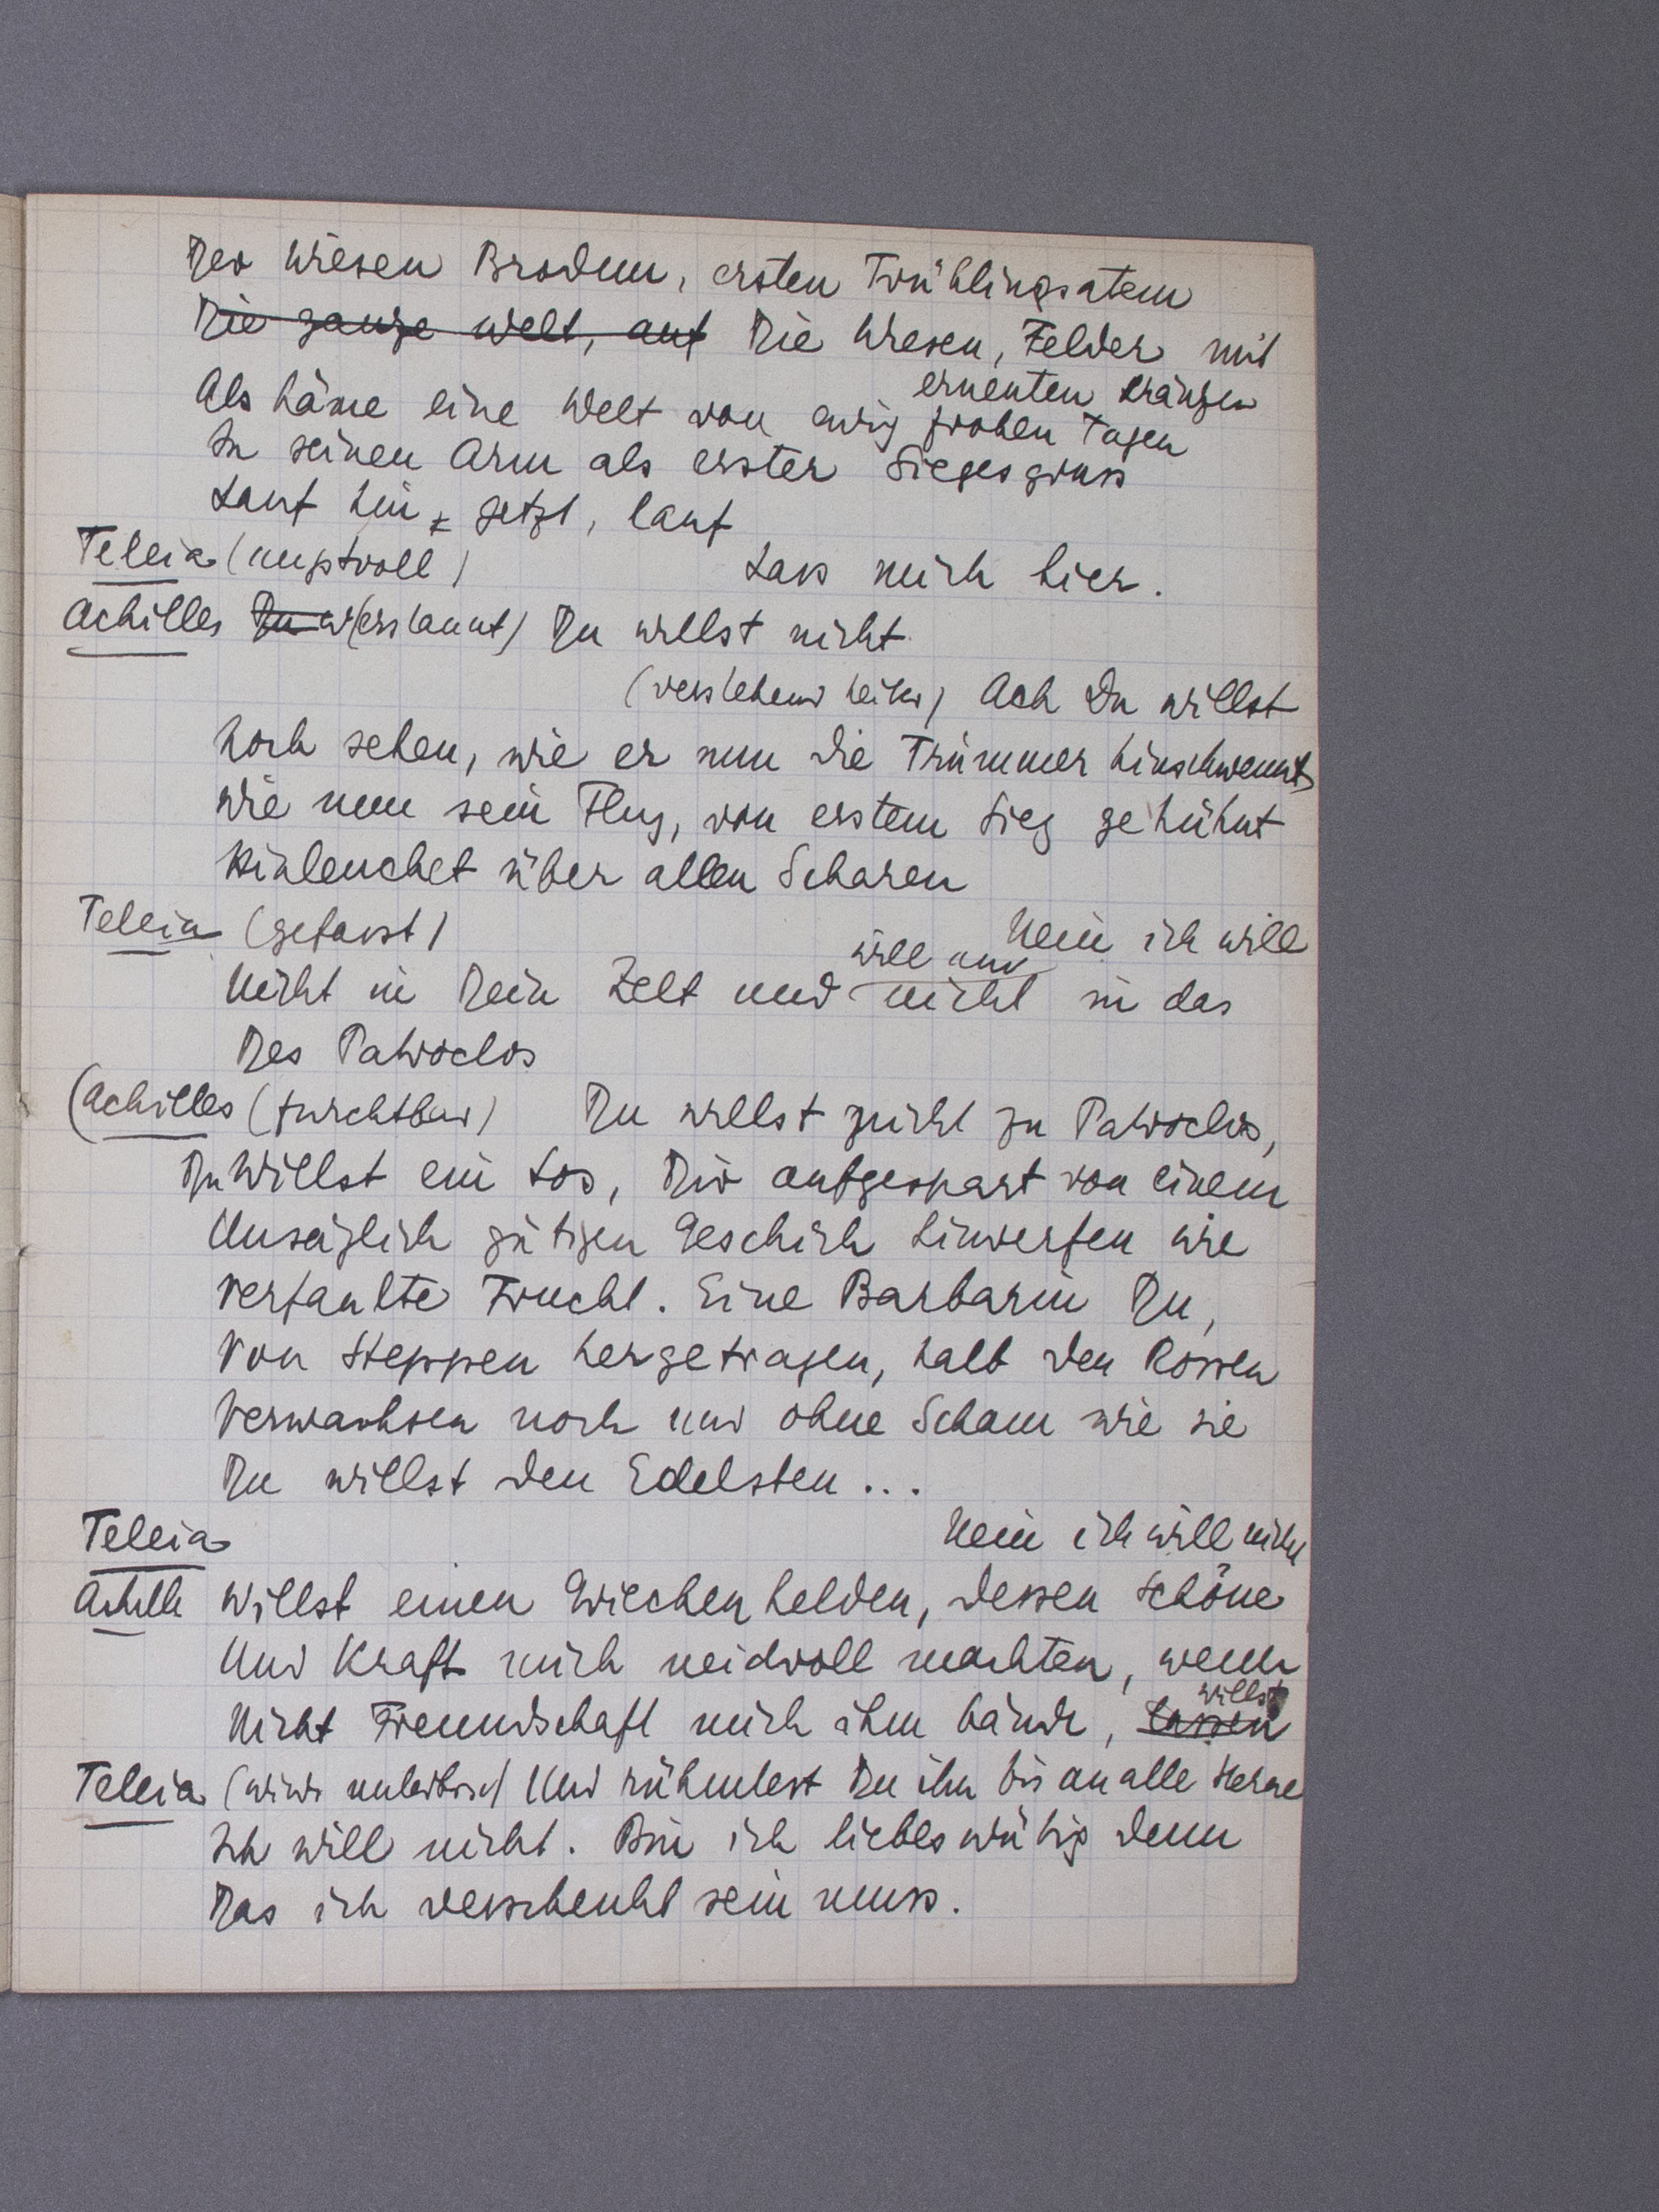 Der Wiesen Brodem, ersten Frühlingsatem
Die ganze Welt, auf Die Wiesen, Felder mit
erneuten Kränzen
Als käme eine Welt von ewig frohen Tagen
In seinen Arm als erster Siegesgruss
Lauf hin jetzt, lauf
Teleia (angstvoll) Lass mich hier.
Achilles Du w (erstaunt) Du willst nicht
(verstehend heiter) Ach Du willst
Noch sehen, wie er nun die Trümmer hinschwemmt,
Wie nun sein Flug, von erstem Sieg gekühnt
Hinleuchet über allen Scharen
Teleia (gefasst) Nein ich will
will auch
Nicht in Dein Zelt und nicht in das
Des Patroclos
(Achilles (furchtbar) Du willst nicht zu Patroclos,
Du Willst ein Los, Dir aufgespart von einem
Unsäglich gütigen Geschick hinwerfen wie
Verfaulte Frucht. Eine Barbarin Du,
Von Steppen hergetragen, halb den Rossen
Verwachsen noch und ohne Scham wie sie
Du willst den Edelsten ...
Teleia Nein ich will nicht
Achille Willst einen Griechenhelden, dessen Schöne
Und Kraft mich neidvoll machten, wenn
willst
Nicht Freundschaft mich ihm bände, lassen
Teleia (wird Und rühmtest Du ihn bis an alle Sterne
Ich will nicht. Bin ich liebeswütig denn
Das ich verschenkt sein muss.